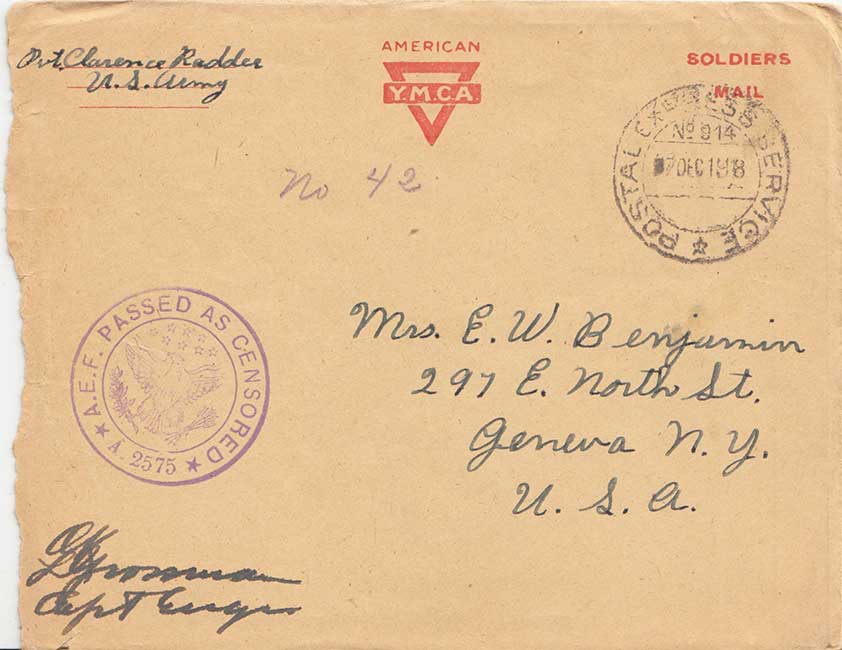 Pvt. Clarence Radder
U.S. Army
AMERICAN
Y.M.C.A.
SOLDIERS
MAIL
POSTAL EXPRESS SERVICE
No 914
7 DEC 1918
No 42
A.E.F. PASSED AS CENSORED
A. 2575
Mrs. E. W. Benjamin
297 E. North St.
Geneva N. Y.
U. S. A.
Grossman
Capt Engrs